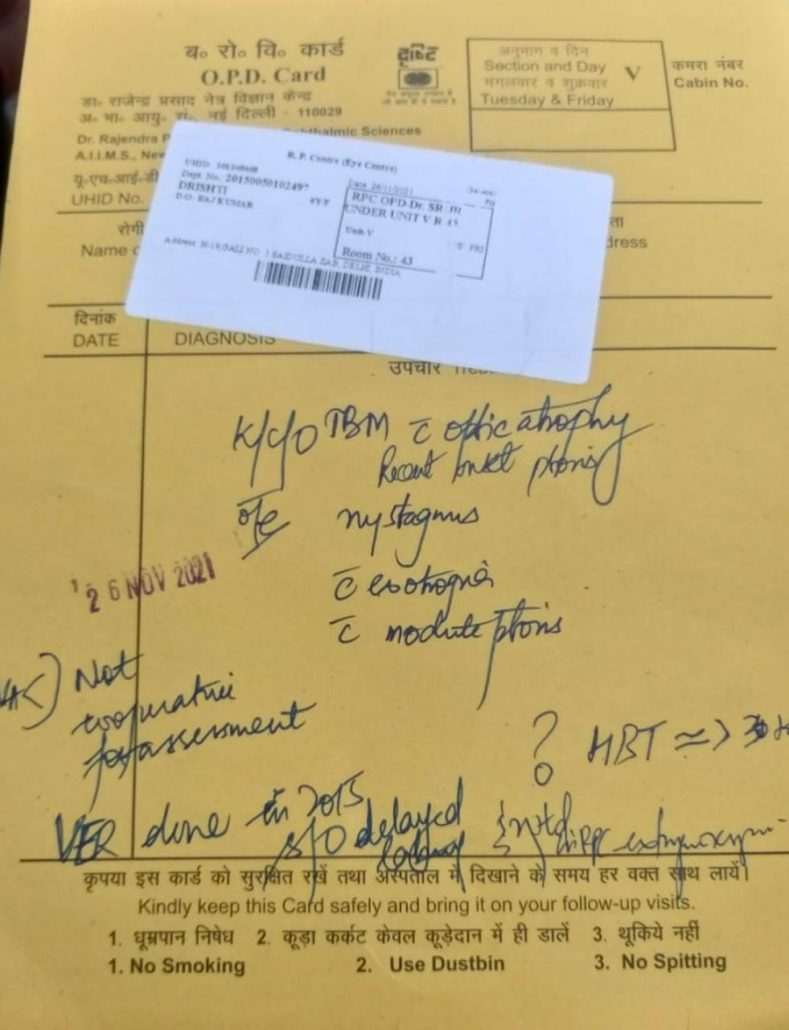 ब० रो० वि० कार्ड
O.P.D. Card
डा० राजेन्द्र प्रसाद नेत्र विज्ञान केन्द्र
अ० भा० आयु० सं०, नई दिल्ली - 110029
Dr. Rajendra P
Ophthalmic Sciences
A.I.I.M.S., New
यू.एच.आई.डी
UHID No.
दृष्टि
अनुभाग व दिन
Section and Day V
मंगलवार व शुक्रवार
Tuesday & Friday
कमरा नंबर
Cabin No.
R.P. Centre (Eye Centre)
UHID
Dept. No. 20150050102497
DRISHTI
D/O RAJ KUMAR
Date 26/11/2021
RPC OPD-Dr. SR
UNDER UNIT V R 43
Unit-V
Room No.: 43
DELHI, INDIA
रोगी
Name
ता
dress
दिनांक
DATE
DIAGNOSIS
उपचार
K/C/O TBM c̄ optic atrophy
Recent onset ptosis
o/e nystagmus
c̄ esotropia
c̄ moderate ptosis
26 NOV 2021
Not
cooperative
for assessment
? HBT
VER done in 2015
s/o delayed
latency
कृपया इस कार्ड को सुरक्षित रखें तथा अस्पताल में दिखाने के समय हर वक्त साथ लायें।
Kindly keep this Card safely and bring it on your follow-up visits.
1. धूम्रपान निषेध 2. कूड़ा कर्कट केवल कूड़ेदान में ही डालें 3. थूकिये नहीं
1. No Smoking 2. Use Dustbin 3. No Spitting